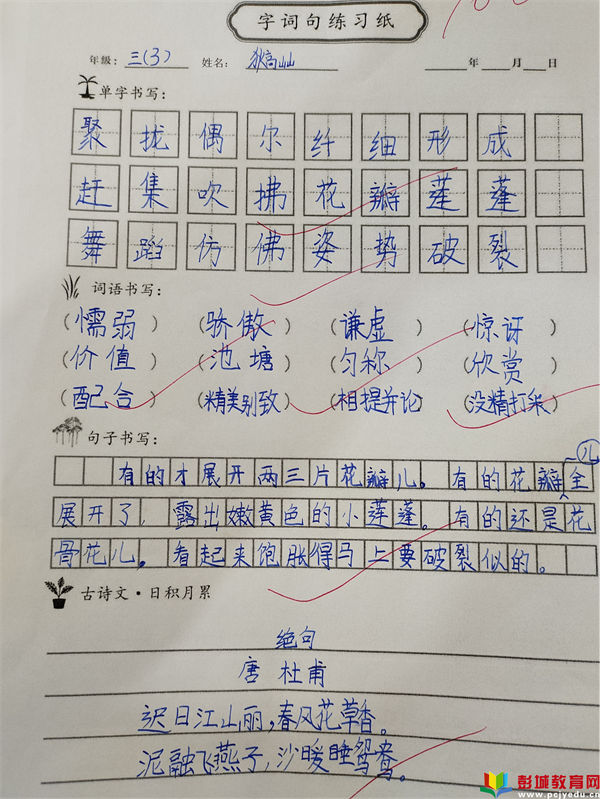 字词句练习纸
年级：三(3) 姓名：狄高山 年 月 日
单字书写：
聚拢偶尔纤细形成
赶集吹拂花瓣莲蓬
舞蹈仿佛姿势破裂
词语书写：
（懦弱）（骄傲）（谦虚）（惊讶）
（价值）（池塘）（匀称）（欣赏）
（配合）（精美别致）（相提并论）（没精打采）
句子书写：
儿
有的才展开两三片花瓣儿。有的花瓣全
展开了，露出嫩黄色的小莲蓬。有的还是花
骨花儿。看起来饱胀得马上要破裂似的。
古诗文·日积月累
绝句
唐 杜甫
迟日江山丽，春风花草香。
泥融飞燕子，沙暖睡鸳鸯。
彭城教育网
www.pcjyedu.cn